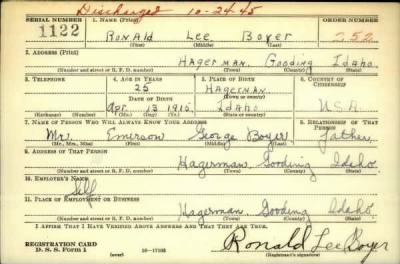 Discharged 10-24-45
SERIAL NUMBER 1. NAME (Print) ORDER NUMBER
1122 RONALD Lee Boyer 252
(First) (Middle) (Last)
2. ADDRESS (Print)
HAGERMAN, Gooding Idaho.
(Number and street or R. F. D. number) (Town) (County) (State)
3. TELEPHONE 4. AGE IN YEARS 5. PLACE OF BIRTH 6. COUNTRY OF CITIZENSHIP
25 HAGERMAN
DATE OF BIRTH (Town or county)
Apr. 13 1915 Idaho USA
(Exchange) (Number) (Mo.) (Day) (Yr.) (State or country)
7. NAME OF PERSON WHO WILL ALWAYS KNOW YOUR ADDRESS 8. RELATIONSHIP OF THAT PERSON
Mr. Emerson George Boyer Father
(Mr., Mrs., Miss) (First) (Middle) (Last)
9. ADDRESS OF THAT PERSON
Hagerman, Gooding Idaho.
(Number and street or R. F. D. number) (Town) (County) (State)
10. EMPLOYER'S NAME
Self
11. PLACE OF EMPLOYMENT OR BUSINESS
Hagerman, Gooding Idaho.
(Number and street or R. F. D. number) (Town) (County) (State)
I AFFIRM THAT I HAVE VERIFIED ABOVE ANSWERS AND THAT THEY ARE TRUE.
REGISTRATION CARD
D. S. S. Form 1 (over) 16-17105
Ronald Lee Boyer
(Registrant's signature)